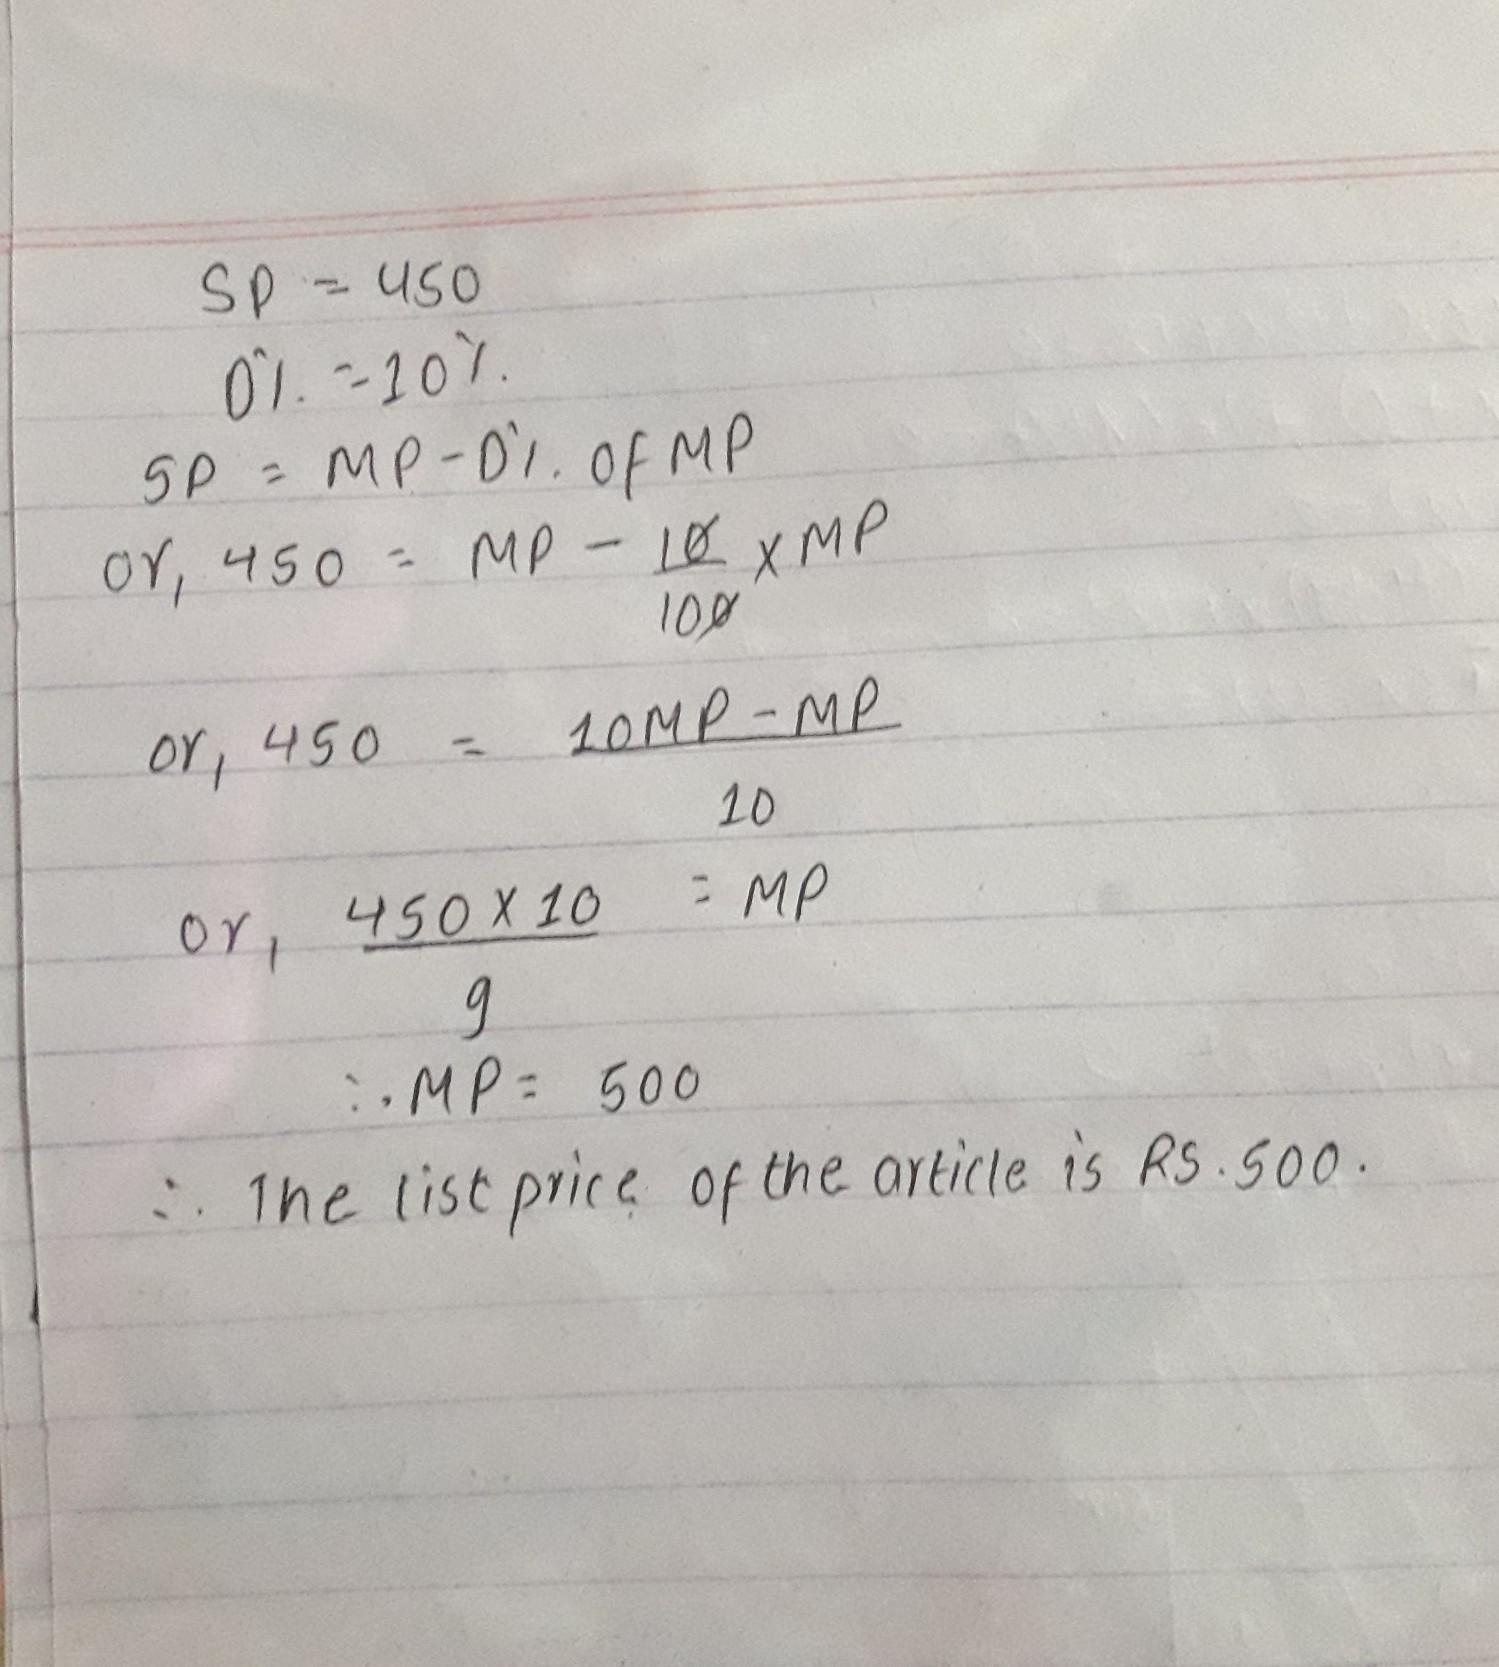 SP = 450
D% = 10%
SP = MP - D% of MP
or, 450 = MP - 10/100 x MP
or, 450 = 10MP - MP / 10
or, 450 x 10 / 9 = MP
∴ MP = 500
∴ The list price of the article is Rs. 500.